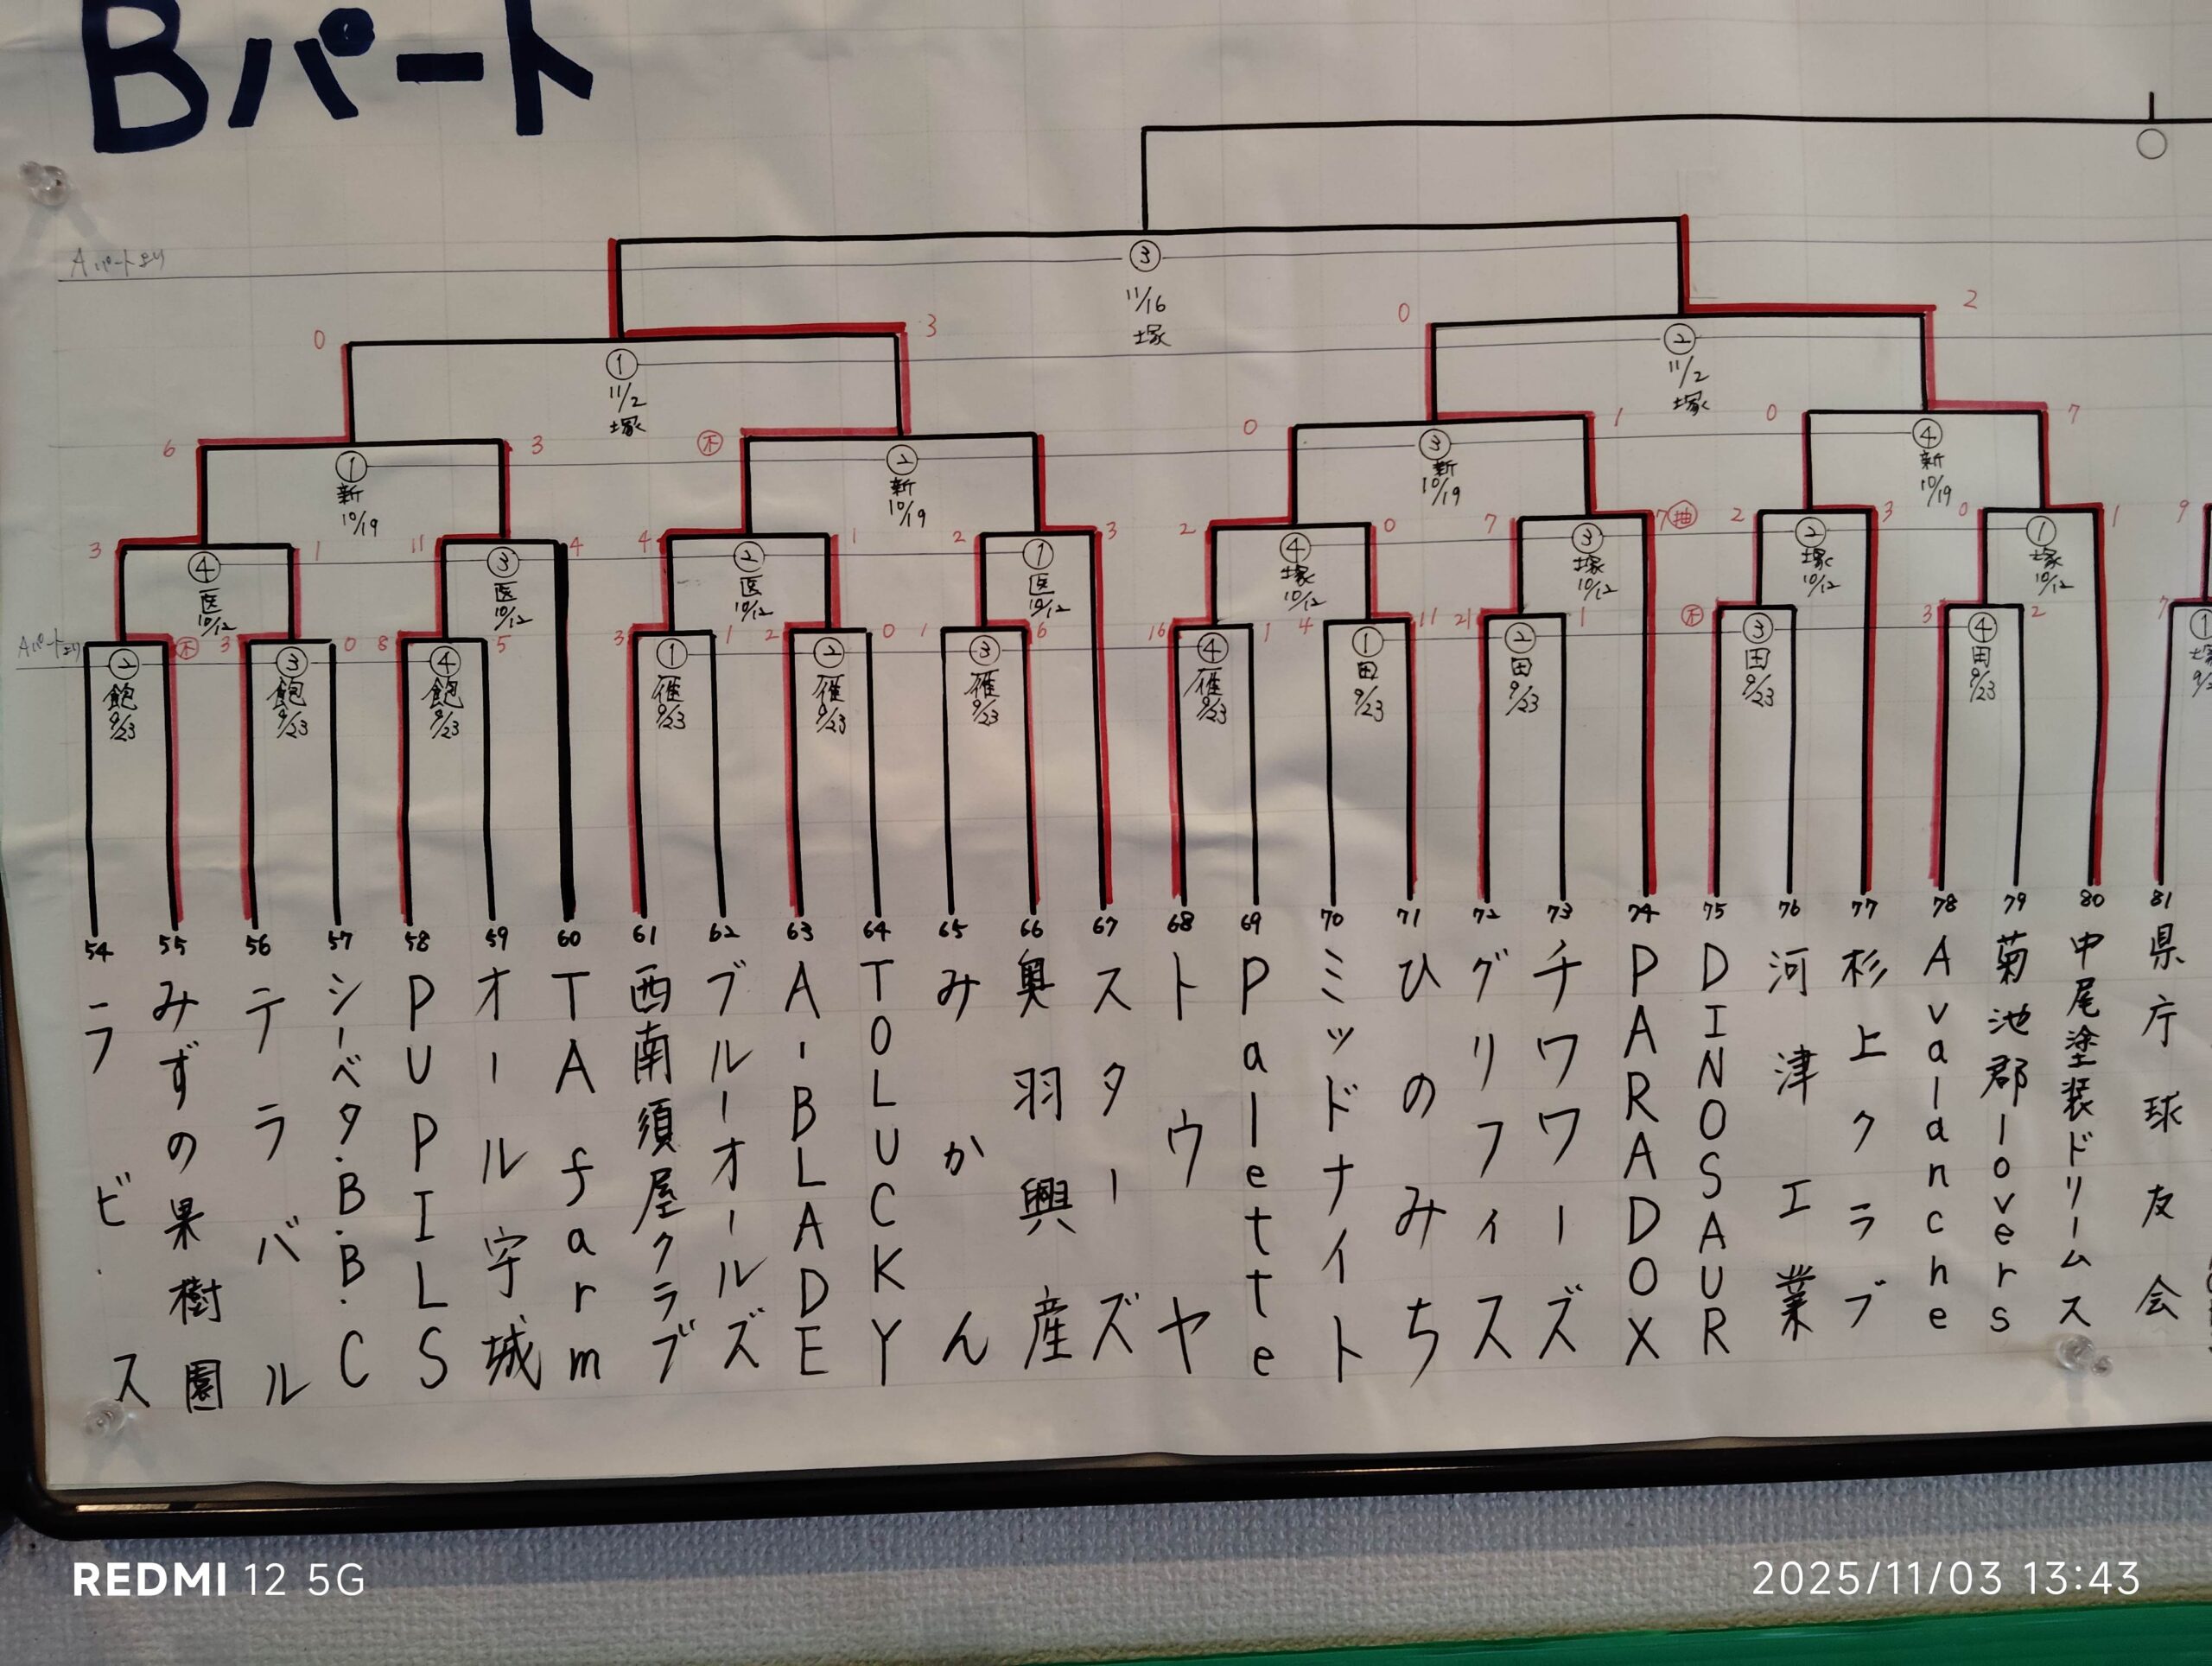 Bパート
Aパートより
③
11/16
塚
0
3
0
2
①
11/2
塚
②
11/2
塚
6
3
不
0
1
0
7
①
新
10/19
②
新
10/19
③
新
10/19
④
新
10/19
3
1
11
4
4
1
2
3
2
0
7
7
抽
2
3
0
1
9
④
医
10/12
③
医
10/12
②
医
10/12
①
医
10/12
④
塚
10/12
③
塚
10/12
②
塚
10/12
①
塚
10/12
Aパートより
不
3
0
8
5
3
1
2
0
1
6
16
1
4
11
21
1
不
3
2
7
②
飽
9/23
③
飽
9/23
④
飽
9/23
①
雁
9/23
②
雁
9/23
③
雁
9/23
④
雁
9/23
①
田
9/23
②
田
9/23
③
田
9/23
④
田
9/23
①
54 ラビス
55 みずの果樹園
56 テラバル
57 シーベタ.B.B.C
58 PUPILS
59 オール宇城
60 TA farm
61 西南須屋クラブ
62 ブルーオールズ
63 A-BLADE
64 TOLUCKY
65 みかん
66 奥羽興産
67 スターズ
68 トウヤ
69 Palette
70 ミッドナイト
71 ひのみち
72 グリフィス
73 チワワーズ
74 PARADOX
75 DINOSAUR
76 河津工業
77 杉上クラブ
78 Avalanche
79 菊池郡lovers
80 中尾塗装ドリームス
81 県庁球友会
REDMI 12 5G
2025/11/03 13:43